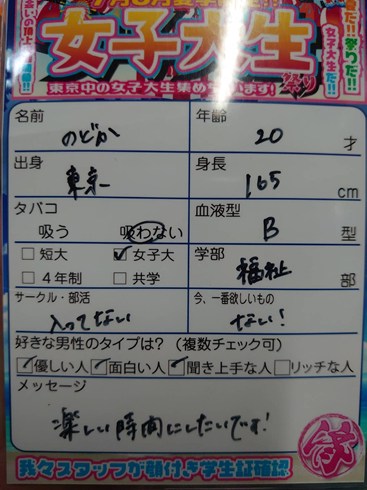 女子大生
東京中の女子大生集めています!
女子大生だ!!
名前 のどか 年齢 20 才
出身 東京 身長 165 cm
タバコ 吸う 吸わない 血液型 B 型
□短大 ☑女子大 学部 福祉 部
□4年制 □共学
サークル・部活 今、一番欲しいもの
入ってない ない!
好きな男性のタイプは?(複数チェック可)
☑優しい人 ☑面白い人 ☑聞き上手な人 □リッチな人
メッセージ
楽しい時間にしたいです!
我々スタッフが顔付き学生証確認